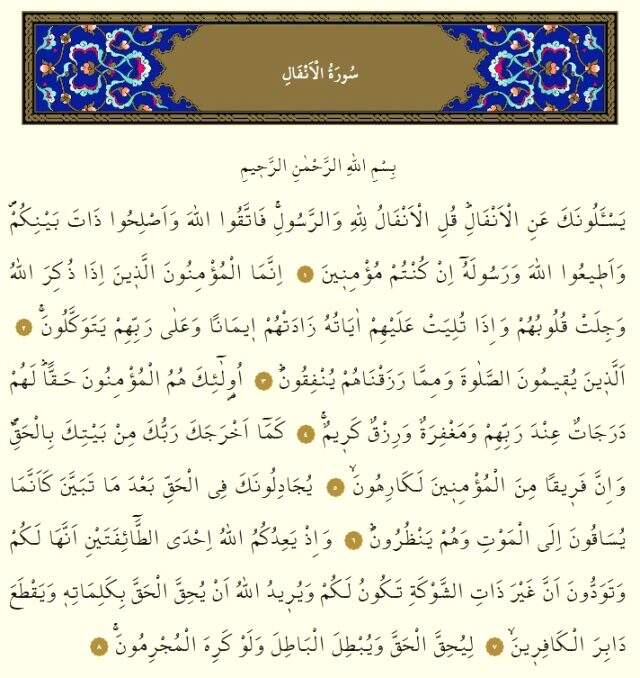 سُورَةُ الْاَنْفَالِ
بِسْمِ اللهِ الرَّحْمٰنِ الرَّحٖيمِ
يَسْـَٔلُونَكَ عَنِ الْاَنْفَالِؕ قُلِ الْاَنْفَالُ لِلّٰهِ وَالرَّسُولِۚ فَاتَّقُوا اللهَ وَاَصْلِحُوا ذَاتَ بَيْنِكُمْࣕ
وَاَطٖيعُوا اللهَ وَرَسُولَهُٓ اِنْ كُنْتُمْ مُؤْمِنٖينَ ١ اِنَّمَا الْمُؤْمِنُونَ الَّذٖينَ اِذَا ذُكِرَ اللهُ
وَجِلَتْ قُلُوبُهُمْ وَاِذَا تُلِيَتْ عَلَيْهِمْ اٰيَاتُهُ زَادَتْهُمْ اٖيمَانًا وَعَلٰى رَبِّهِمْ يَتَوَكَّلُونَۚ ٢
اَلَّذٖينَ يُقٖيمُونَ الصَّلٰوةَ وَمِمَّا رَزَقْنَاهُمْ يُنْفِقُونَؕ ٣ اُولٰٓئِكَ هُمُ الْمُؤْمِنُونَ حَقًّاؕ لَهُمْ
دَرَجَاتٌ عِنْدَ رَبِّهِمْ وَمَغْفِرَةٌ وَرِزْقٌ كَرٖيمٌۚ ٤ كَمَٓا اَخْرَجَكَ رَبُّكَ مِنْ بَيْتِكَ بِالْحَقِّࣕ
وَاِنَّ فَرٖيقًا مِنَ الْمُؤْمِنٖينَ لَكَارِهُونَۙ ٥ يُجَادِلُونَكَ فِى الْحَقِّ بَعْدَ مَا تَبَيَّنَ كَاَنَّمَا
يُسَاقُونَ اِلَى الْمَوْتِ وَهُمْ يَنْظُرُونَؕ ٦ وَاِذْ يَعِدُكُمُ اللهُ اِحْدَى الطَّٓائِفَتَيْنِ اَنَّهَا لَكُمْ
وَتَوَدُّونَ اَنَّ غَيْرَ ذَاتِ الشَّوْكَةِ تَكُونُ لَكُمْ وَيُرٖيدُ اللهُ اَنْ يُحِقَّ الْحَقَّ بِكَلِمَاتِهٖ وَيَقْطَعَ
دَابِرَ الْكَافِرٖينَۙ ٧ لِيُحِقَّ الْحَقَّ وَيُبْطِلَ الْبَاطِلَ وَلَوْ كَرِهَ الْمُجْرِمُونَۚ ٨